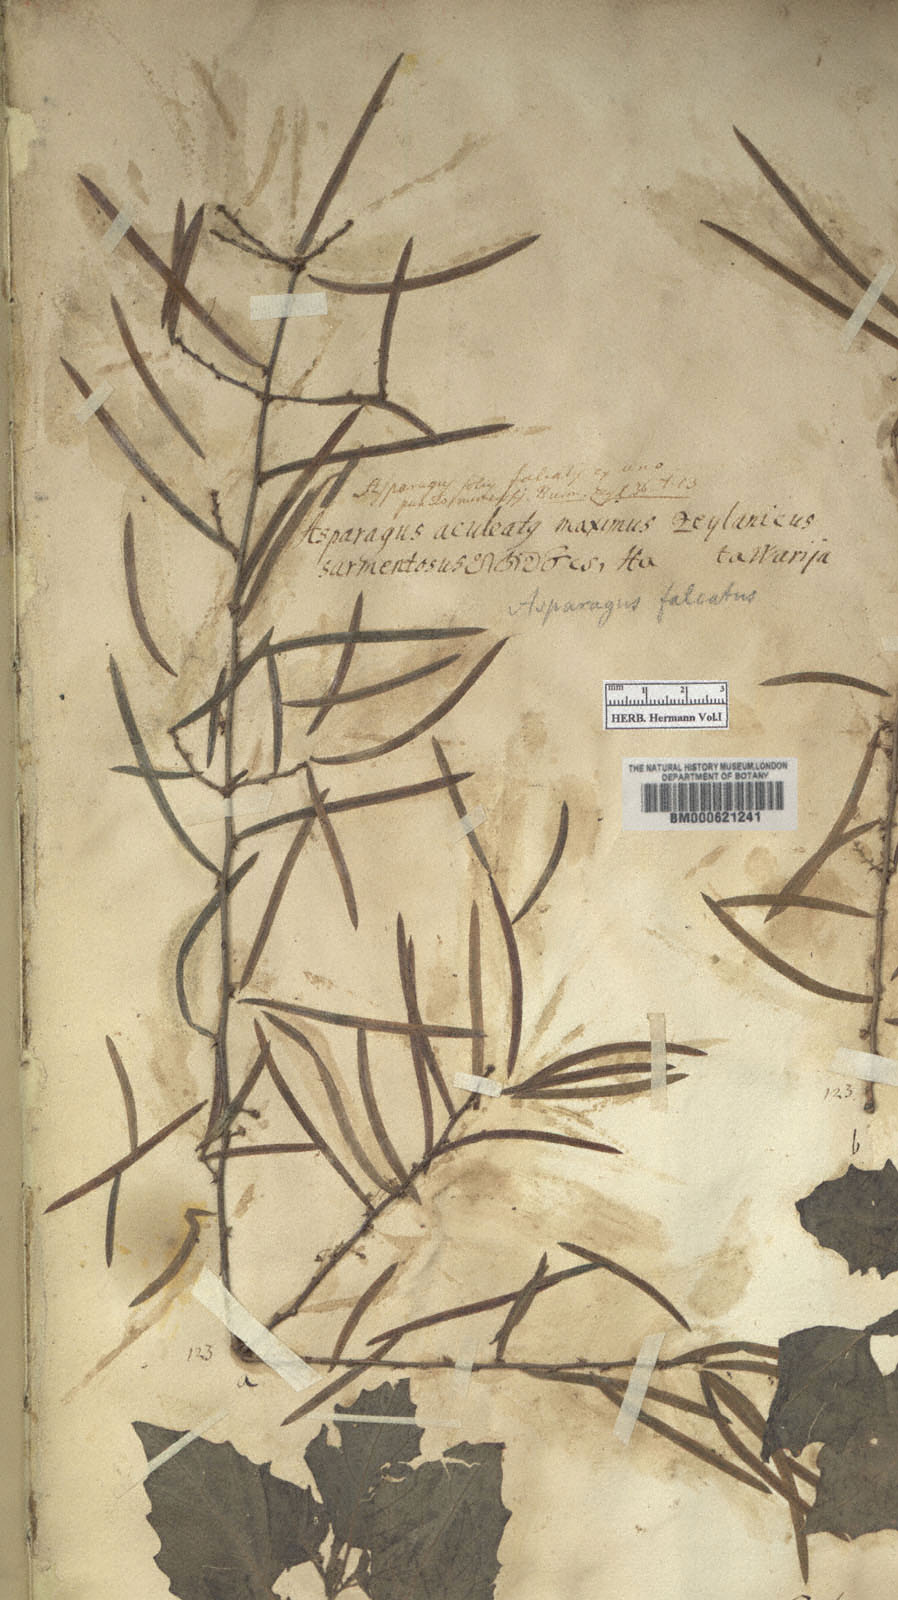 Asparagus foliis falcatis ex uno
Burm. Zeyl. 36. t. 13
Asparagus aculeatq maximus Zeylanicus
sarmentosus Ha tawarija
Asparagus falcatus
mm 1 2 3
HERB. Hermann Vol.I
THE NATURAL HISTORY MUSEUM, LONDON
DEPARTMENT OF BOTANY
BM000621241
123
b
123
a